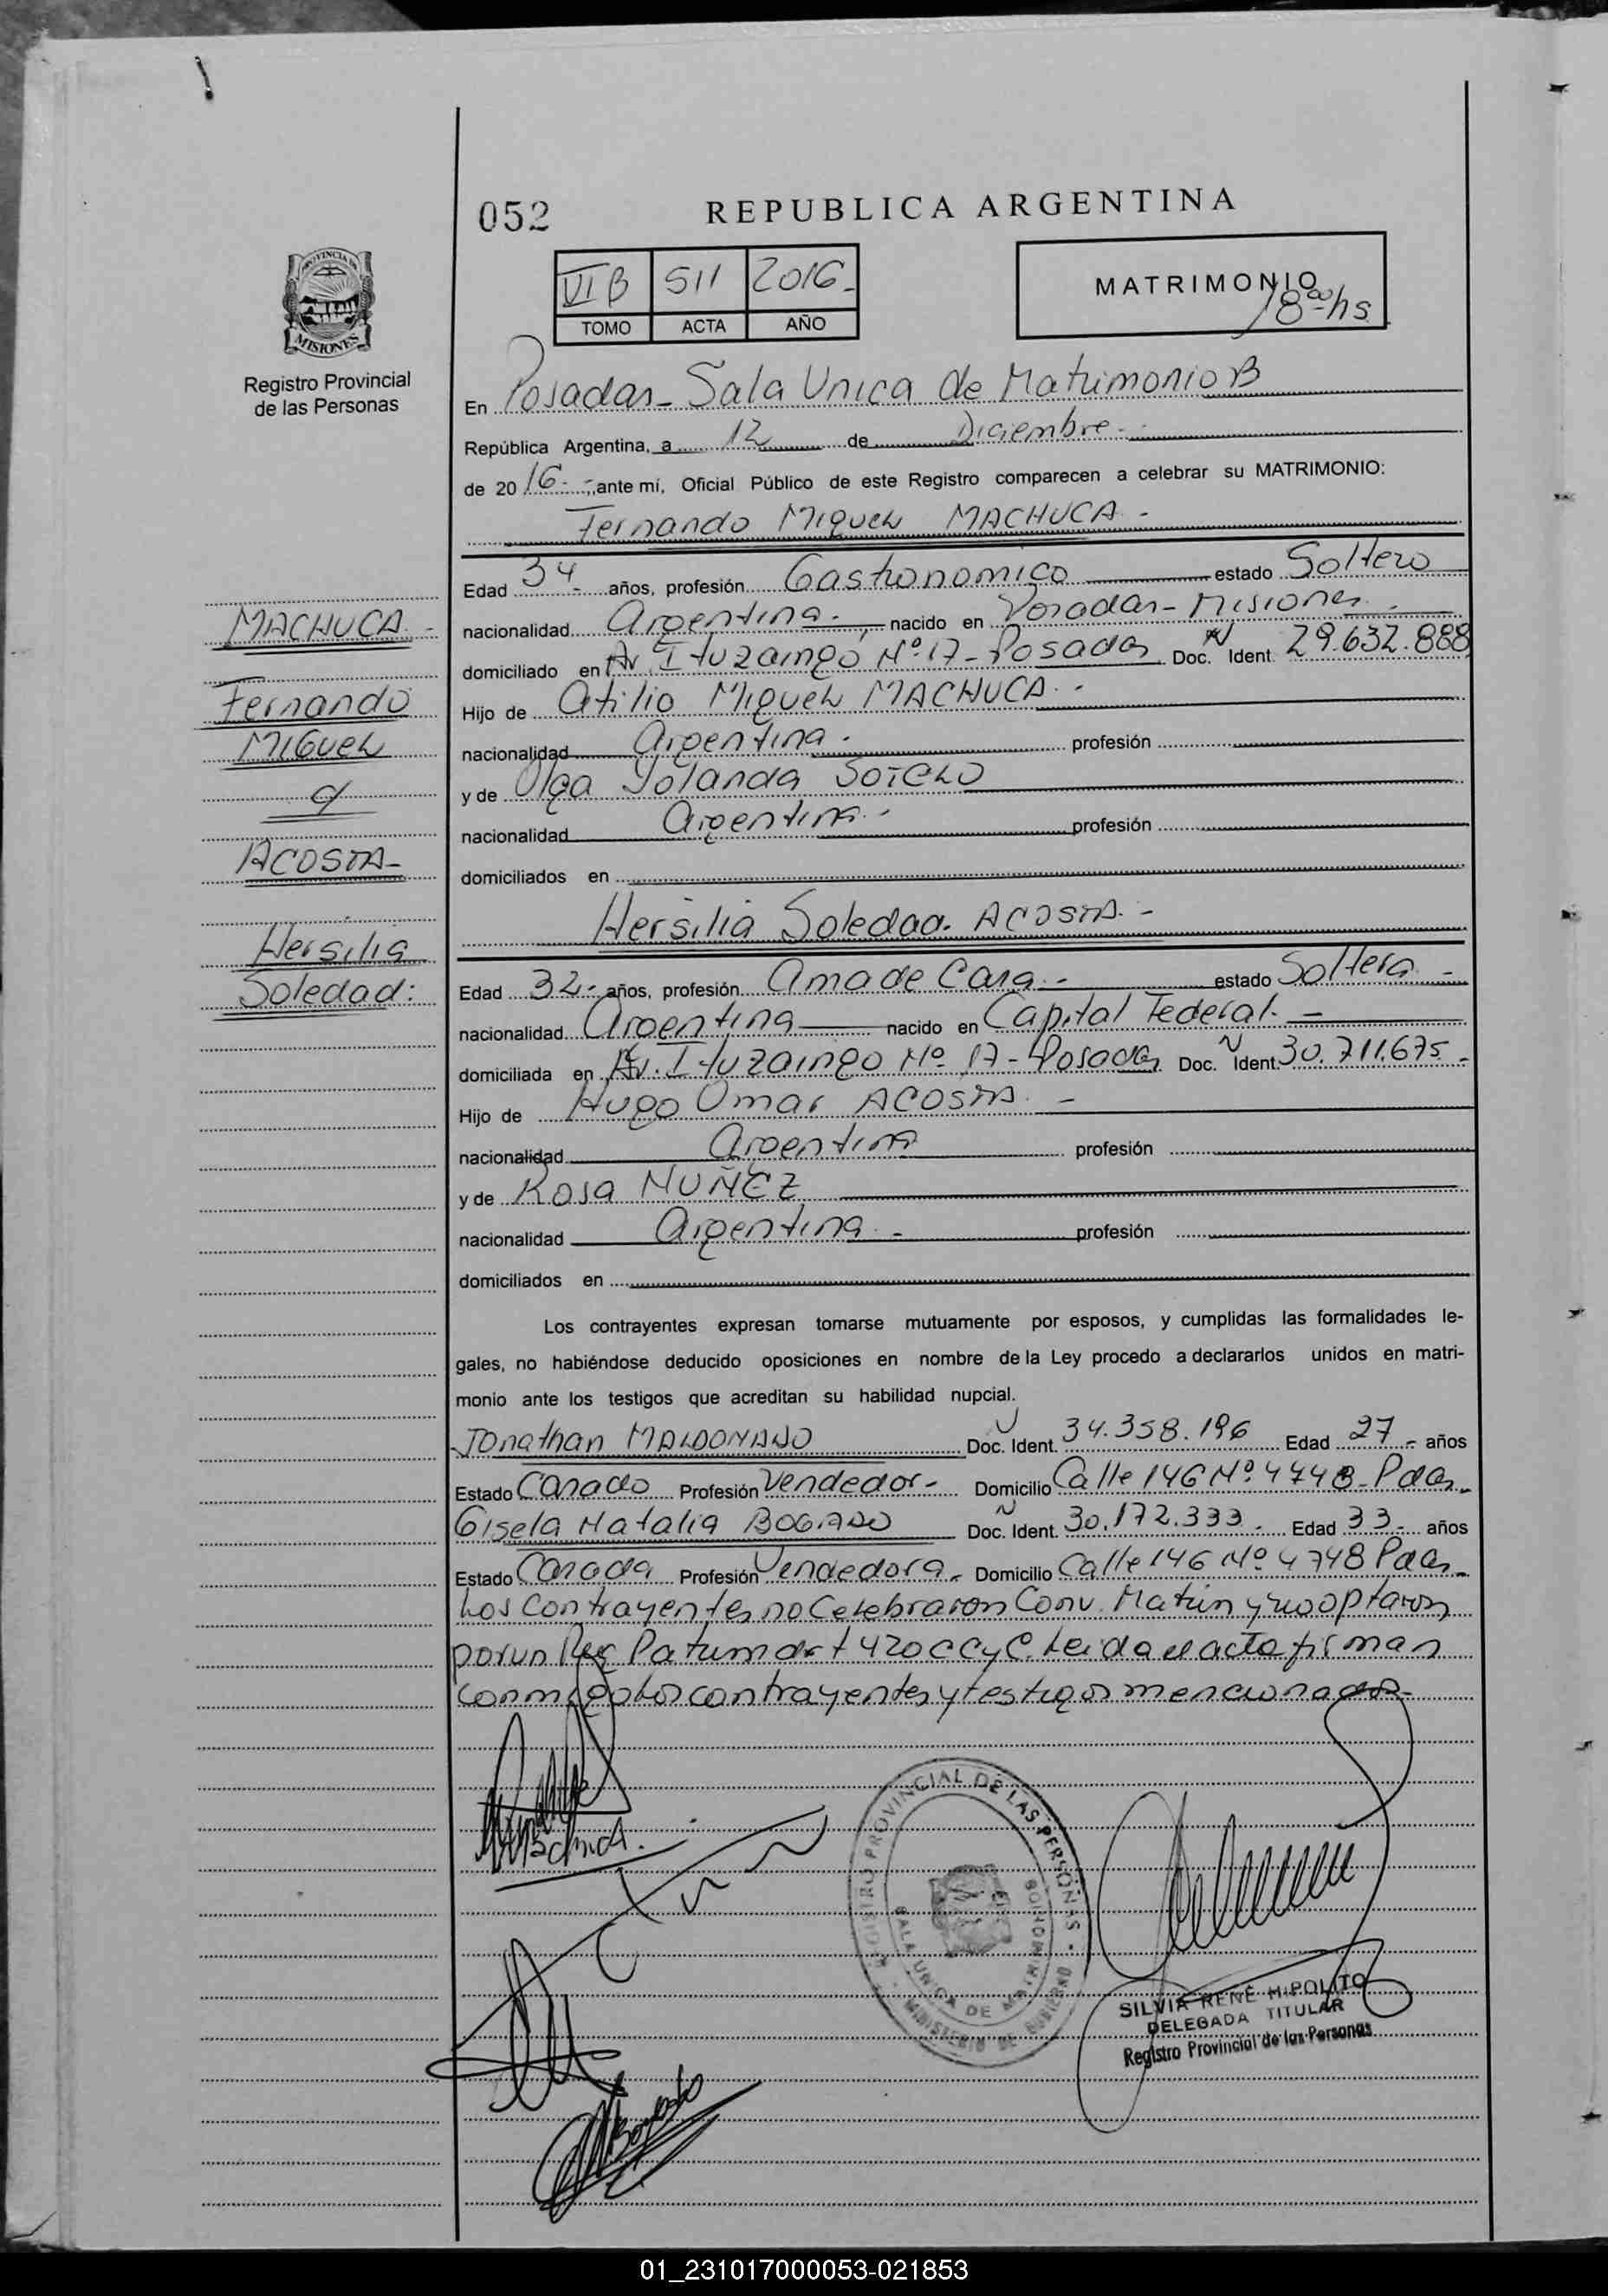 052
REPUBLICA ARGENTINA
VI B 511 2016-
TOMO ACTA AÑO
MATRIMONIO
18ºº hs
PROVINCIA DE
MISIONES
Registro Provincial
de las Personas
En Posadas - Sala Unica de Matrimonio B
República Argentina, a 12 de Diciembre -
de 2016.- ante mí, Oficial Público de este Registro comparecen a celebrar su MATRIMONIO:
Fernando Miguel MACHUCA -
MACHUCA -
Fernando
Miguel
ACOSTA -
Hersilia
Soledad:
Edad 34 - años, profesión Gastronomico estado Soltero
nacionalidad Argentina - nacido en Posadas - Misiones -
domiciliado en Av. Ituzaingó Nº 17 - Posadas Doc. N Ident. 29.632.888
Hijo de Atilio Miguel MACHUCA -
nacionalidad Argentina - profesión
y de Olga Yolanda SOTELO
nacionalidad Argentina - profesión
domiciliados en
Hersilia Soledad ACOSTA -
Edad 32 - años, profesión Ama de Casa - estado Soltera -
nacionalidad Argentina nacido en Capital Federal -
domiciliada en Av. Ituzaingo Nº 17 - Posadas Doc. N Ident. 30.711.675 -
Hijo de Hugo Omar ACOSTA -
nacionalidad Argentina profesión
y de Rosa NUÑEZ
nacionalidad Argentina - profesión
domiciliados en
Los contrayentes expresan tomarse mutuamente por esposos, y cumplidas las formalidades le-
gales, no habiéndose deducido oposiciones en nombre de la Ley procedo a declararlos unidos en matri-
monio ante los testigos que acreditan su habilidad nupcial.
Jonathan MALDONADO Doc. Ident. 34.358.196 Edad 27 - años
Estado Casado Profesión Vendedor - Domicilio Calle 146 Nº 4748 - Pdas
Gisela Natalia BOGADO Doc. N Ident. 30.172.333 - Edad 33 - años
Estado Casada Profesión Vendedora - Domicilio Calle 146 Nº 4748 Pdas
Los contrayentes no Celebraron Conv. Matrim y no optaron
por un Reg Patrim art 420 CCyC. Leida el acta firman
conmigo los contrayentes y testigos mencionados -
Machuca
REGISTRO PROVINCIAL DE LAS PERSONAS
SALA UNICA DE MATRIMONIOS
MINISTERIO DE GOBIERNO
SILVIA RENÉ HIPOLITO
DELEGADA TITULAR
Registro Provincial de las Personas
Bogado
01_231017000053-021853